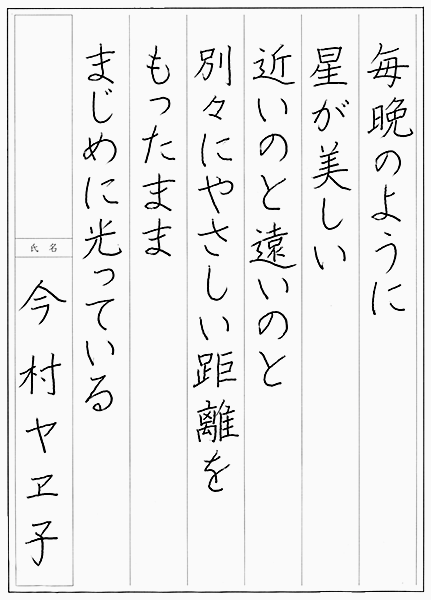 毎晩のように
星が美しい
近いのと遠いのと
別々にやさしい距離を
もったまま
まじめに光っている
氏名
今村ヤヱ子